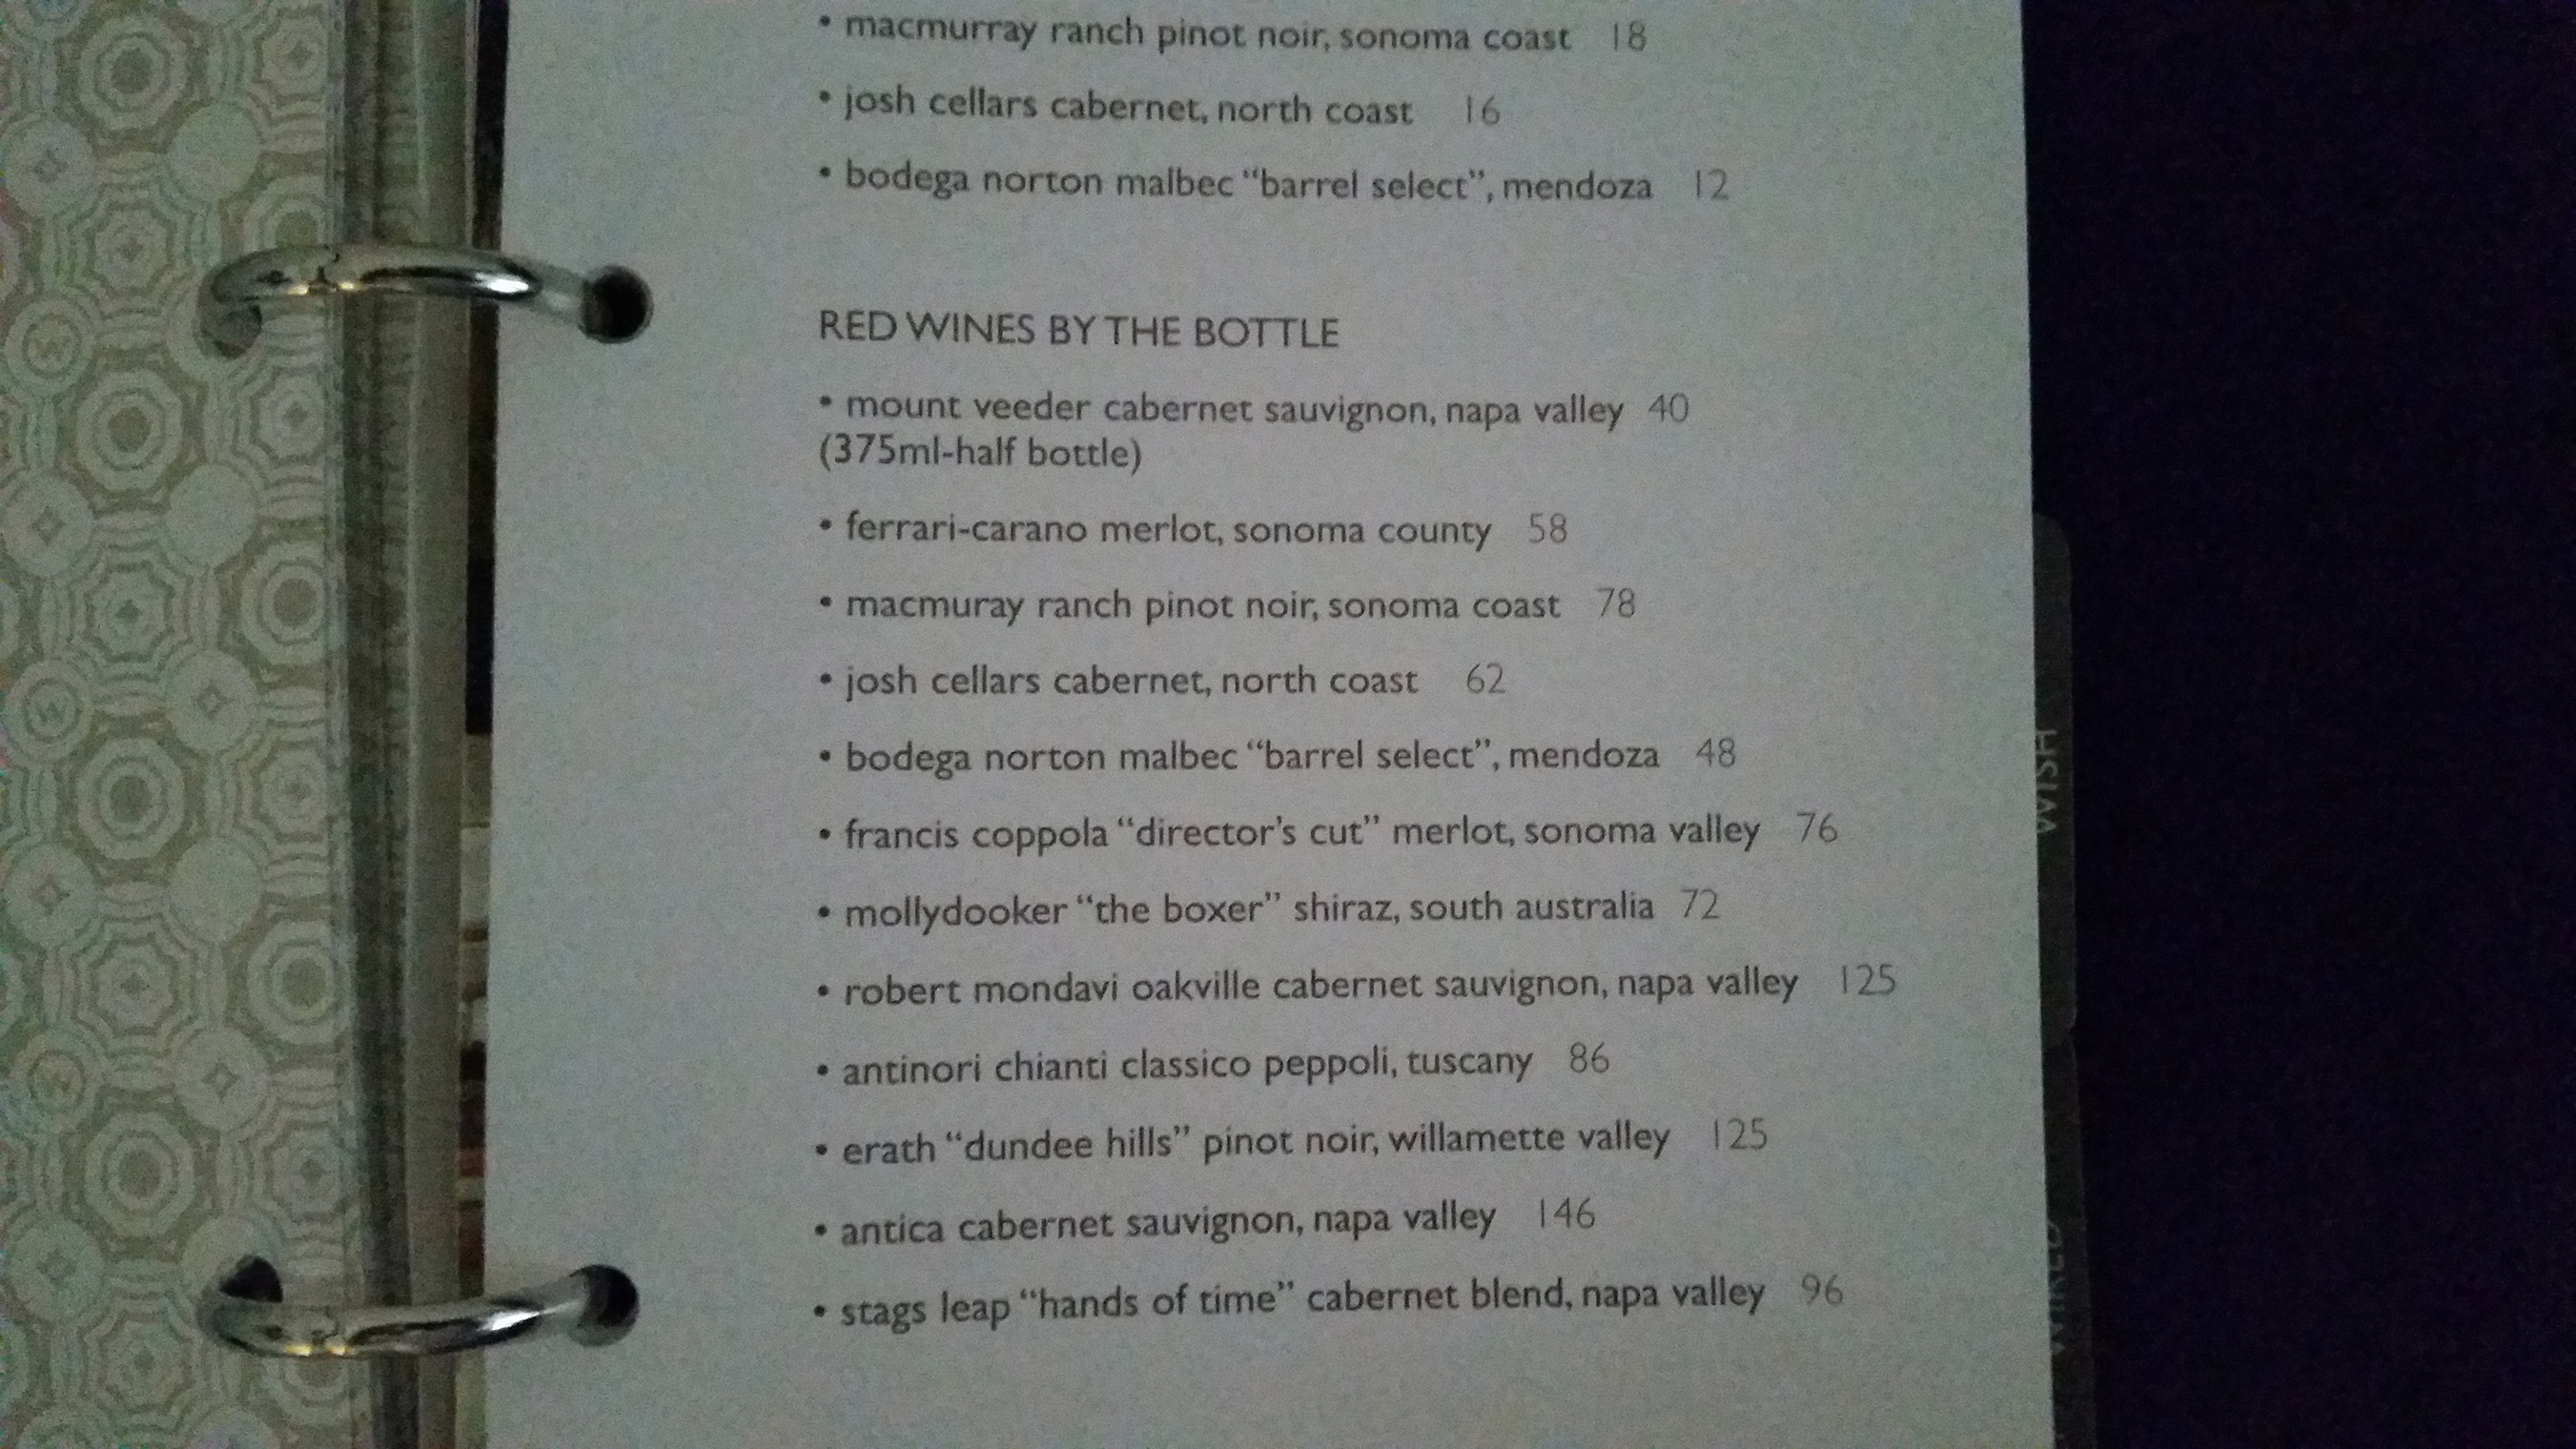 • macmurray ranch pinot noir, sonoma coast 18
• josh cellars cabernet, north coast 16
• bodega norton malbec “barrel select”, mendoza 12
RED WINES BY THE BOTTLE
• mount veeder cabernet sauvignon, napa valley 40
(375ml-half bottle)
• ferrari-carano merlot, sonoma county 58
• macmuray ranch pinot noir, sonoma coast 78
• josh cellars cabernet, north coast 62
• bodega norton malbec “barrel select”, mendoza 48
• francis coppola “director’s cut” merlot, sonoma valley 76
• mollydooker “the boxer” shiraz, south australia 72
• robert mondavi oakville cabernet sauvignon, napa valley 125
• antinori chianti classico peppoli, tuscany 86
• erath “dundee hills” pinot noir, willamette valley 125
• antica cabernet sauvignon, napa valley 146
• stags leap “hands of time” cabernet blend, napa valley 96
WISH
W
W
W